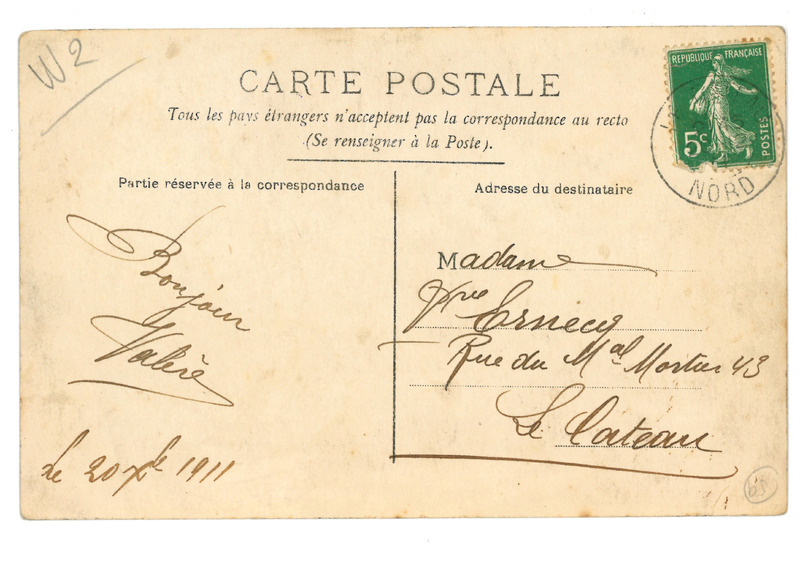 W2
CARTE POSTALE
REPUBLIQUE FRANÇAISE
5c
POSTES
NORD
Tous les pays étrangers n'acceptent pas la correspondance au recto
(Se renseigner à la Poste).
Partie réservée à la correspondance
Adresse du destinataire
Bonjour
Valère
le 20 Xbe 1911
Madame
Vve
Rue du Mal Mortier 43
Le Cateau